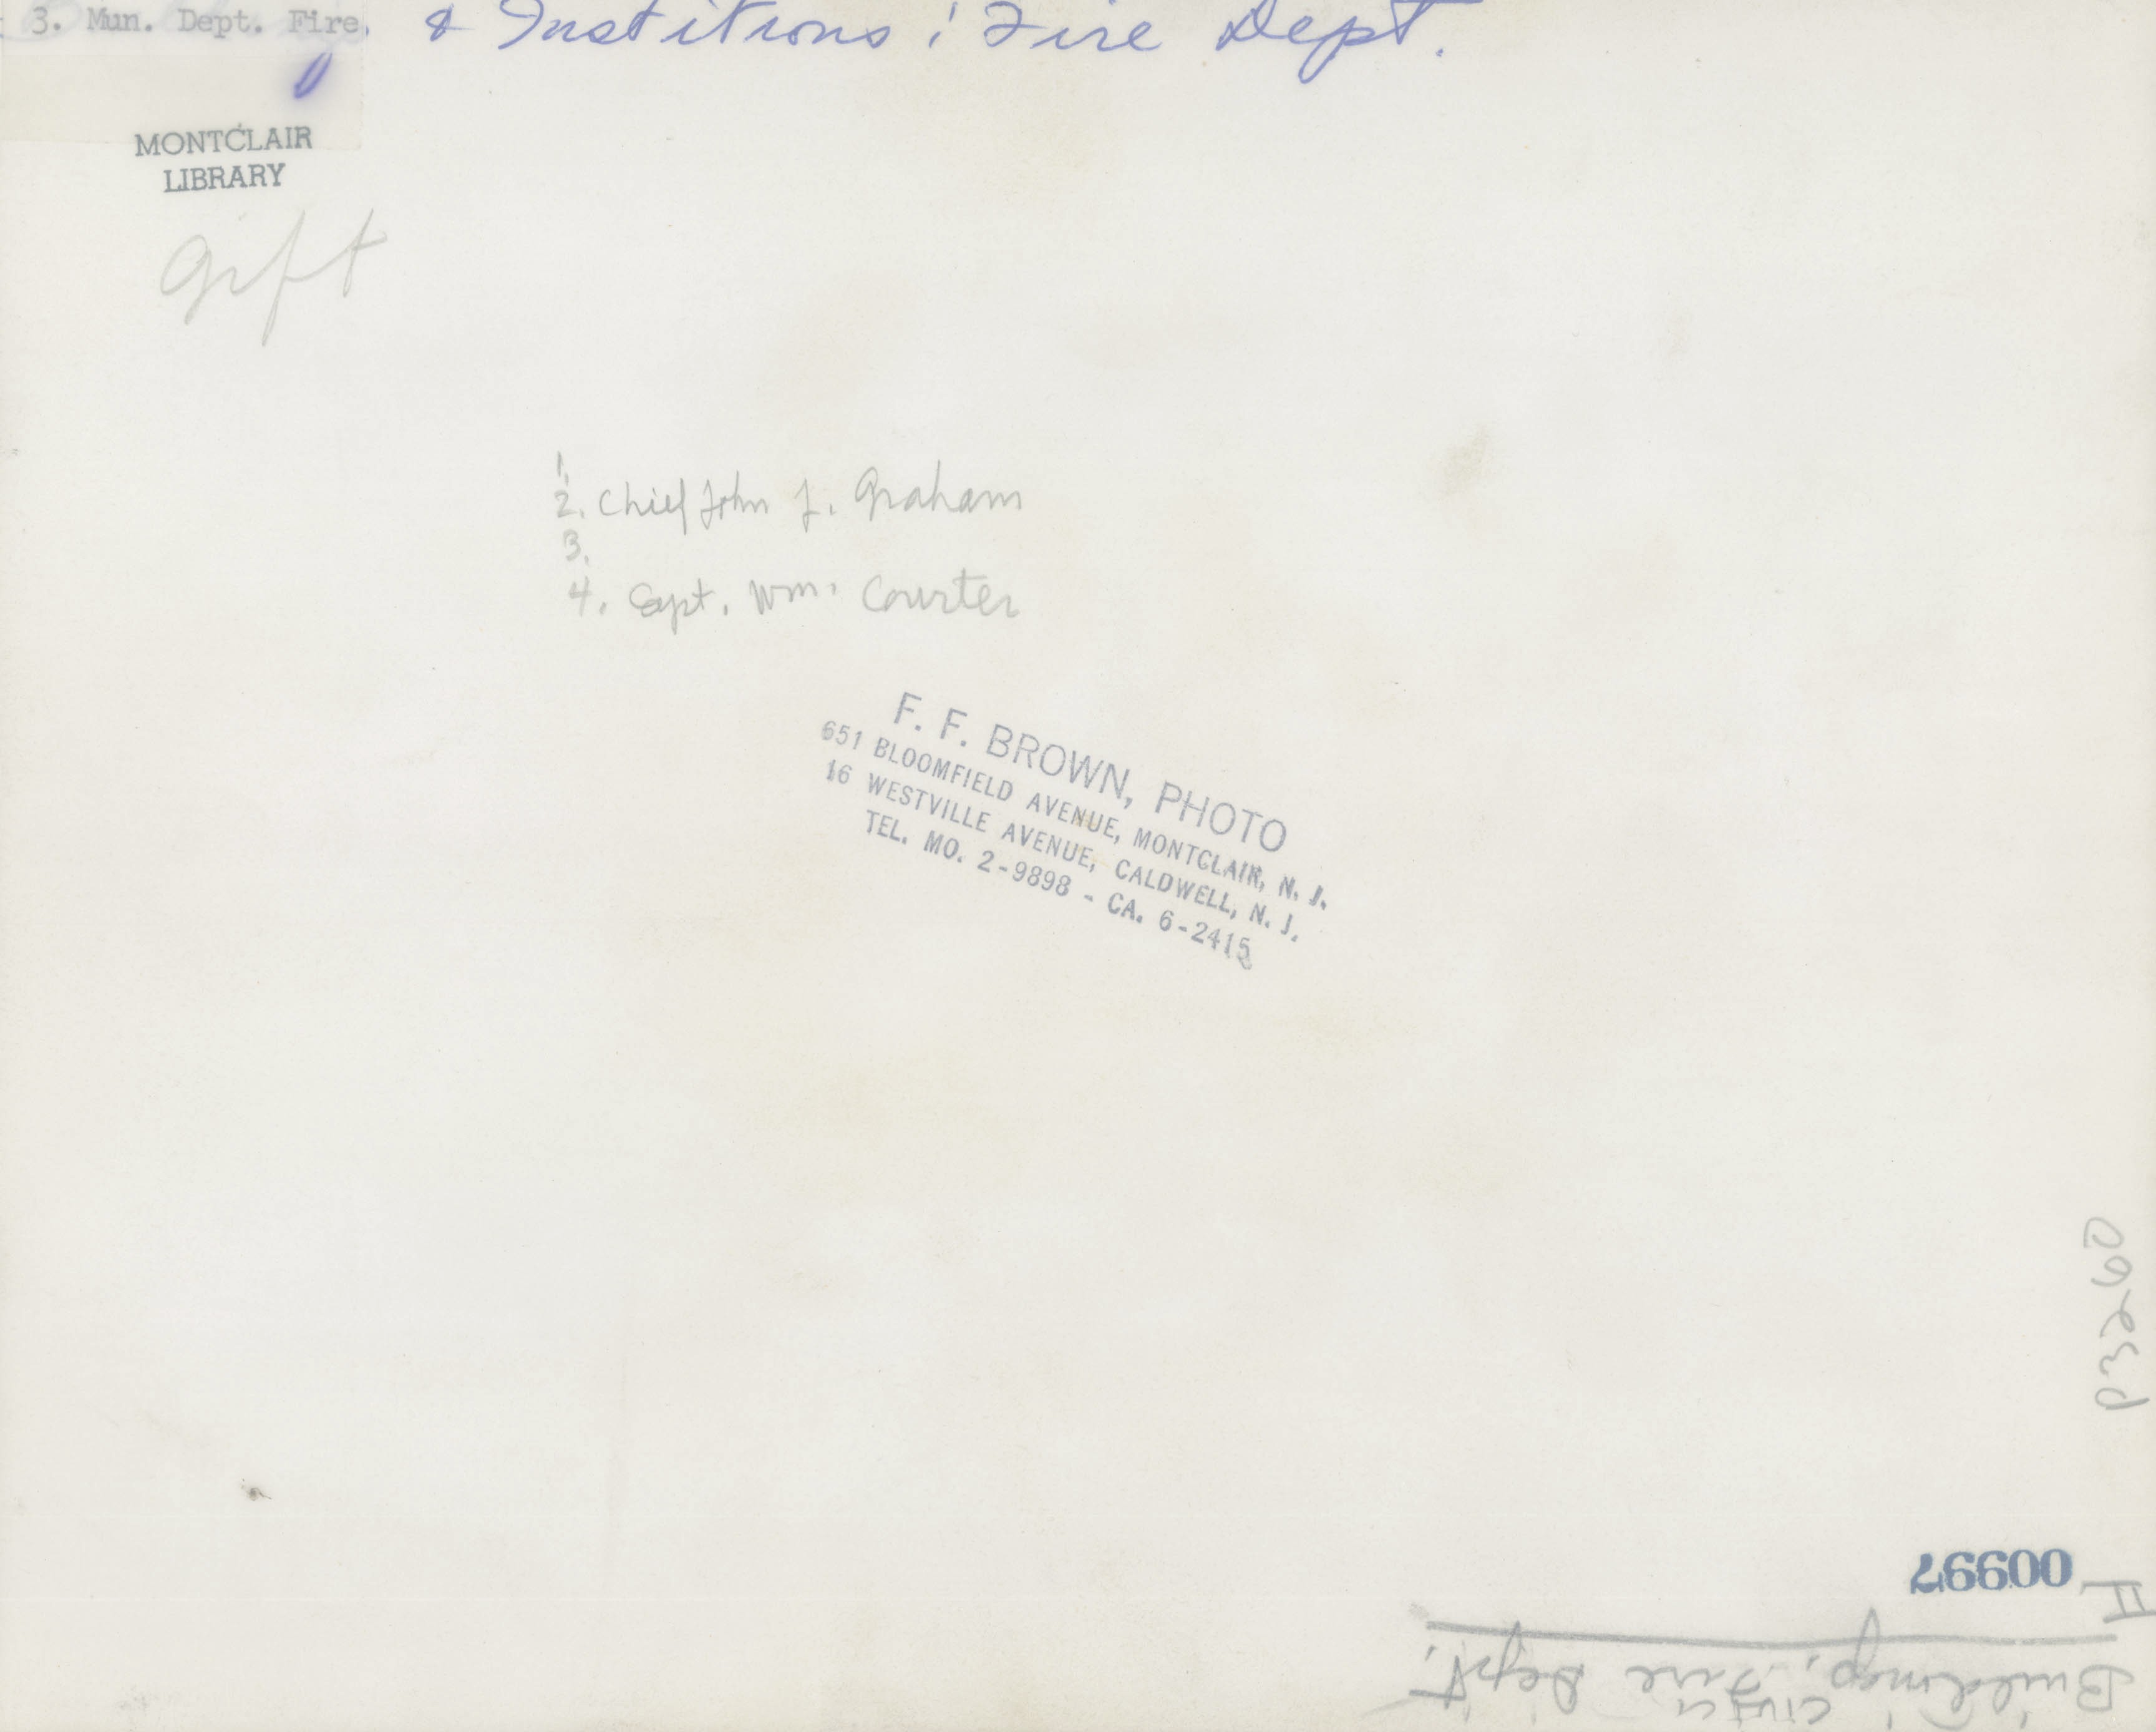 3. Mun. Dept. Fire.
& Institions: Fire Dept.
MONTCLAIR
LIBRARY
gift
1.
2. Chief John J. Graham
3.
4. Capt. Wm. Courter
F. F. BROWN, PHOTO
651 BLOOMFIELD AVENUE, MONTCLAIR, N. J.
16 WESTVILLE AVENUE, CALDWELL, N. J.
TEL. MO. 2-9898 - CA. 6-2415
00997
II
Buildings, Fire Dept.